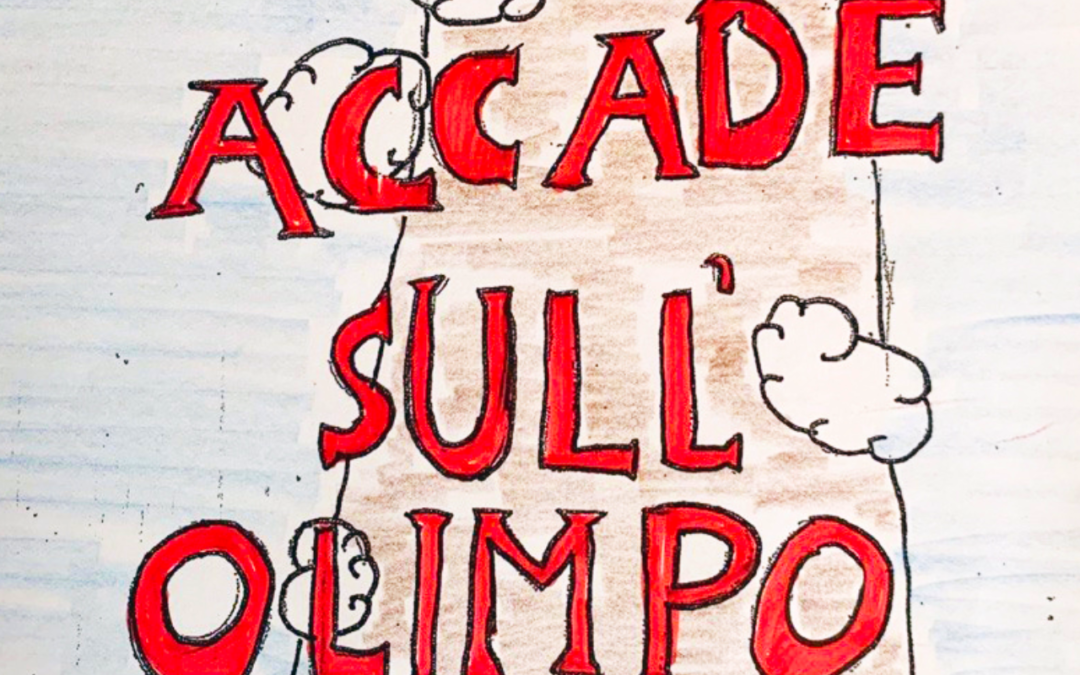 ACCADE
SULL'
OLIMPO